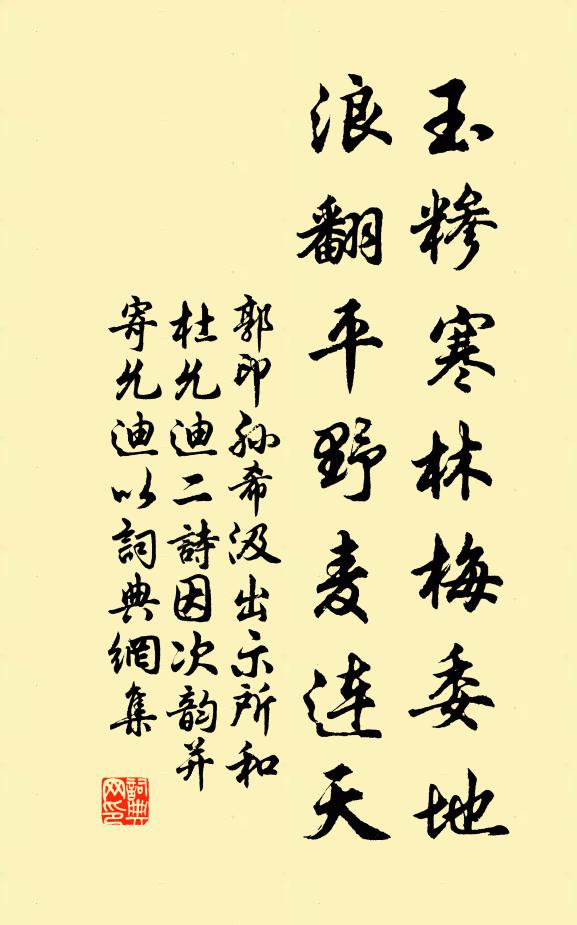 玉糝寒林梅委地
浪翻平野麦連天
郭印孙希汲出示所和
杜允迪二詩因次韵并
寄允迪以詞典網集
詞典
网印